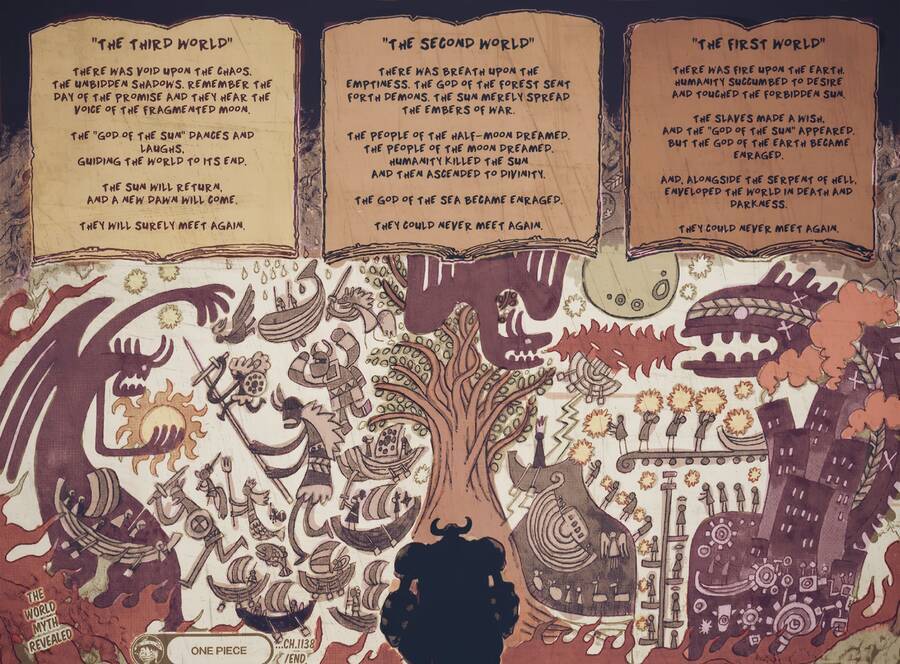 "THE THIRD WORLD"
THERE WAS VOID UPON THE CHAOS.
THE UNBIDDEN SHADOWS. REMEMBER THE
DAY OF THE PROMISE AND THEY HEAR THE
VOICE OF THE FRAGMENTED MOON.
THE "GOD OF THE SUN" DANCES AND
LAUGHS,
GUIDING THE WORLD TO ITS END.
THE SUN WILL RETURN,
AND A NEW DAWN WILL COME.
THEY WILL SURELY MEET AGAIN.
"THE SECOND WORLD"
THERE WAS BREATH UPON THE
EMPTINESS. THE GOD OF THE FOREST SENT
FORTH DEMONS. THE SUN MERELY SPREAD
THE EMBERS OF WAR.
THE PEOPLE OF THE HALF-MOON DREAMED.
THE PEOPLE OF THE MOON DREAMED.
HUMANITY KILLED THE SUN
AND THEN ASCENDED TO DIVINITY.
THE GOD OF THE SEA BECAME ENRAGED.
THEY COULD NEVER MEET AGAIN.
"THE FIRST WORLD"
THERE WAS FIRE UPON THE EARTH.
HUMANITY SUCCUMBED TO DESIRE
AND TOUCHED THE FORBIDDEN SUN.
THE SLAVES MADE A WISH,
AND THE "GOD OF THE SUN" APPEARED.
BUT THE GOD OF THE EARTH BECAME
ENRAGED.
AND, ALONGSIDE THE SERPENT OF HELL,
ENVELOPED THE WORLD IN DEATH AND
DARKNESS.
THEY COULD NEVER MEET AGAIN.
THE
WORLD
MYTH
REVEALED
ONE PIECE
...CH.1138
/END